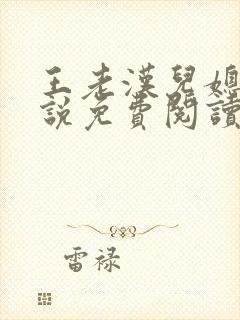 王老漢兒媳
說免費閱讀
雷禄